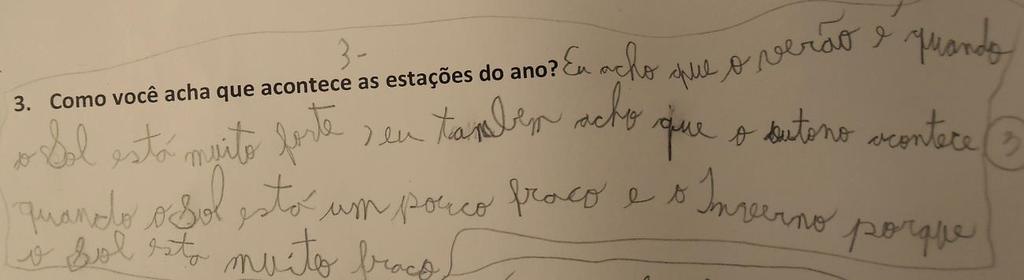 3-
3. Como você acha que acontece as estações do ano? Eu acho que o verão é quando
o Sol está muito forte, eu tambem acho que o outono acontece 3
quando o Sol está um pouco fraco e o Inverno porque
o Sol esta muito fraco